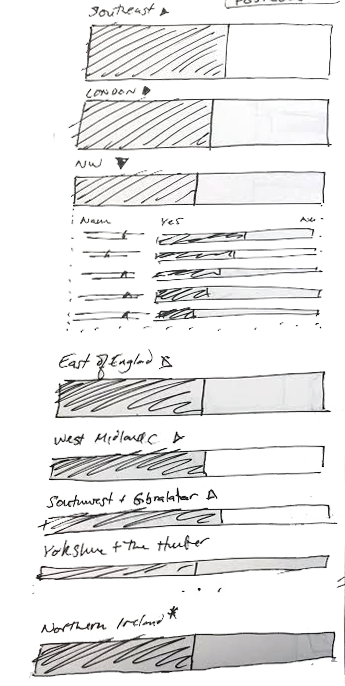 Southeast
LONDON
NW
Name Yes No
East of England
West Midlands
Southwest + Gibralatar
Yorkshire + The Humber
Northern Ireland*